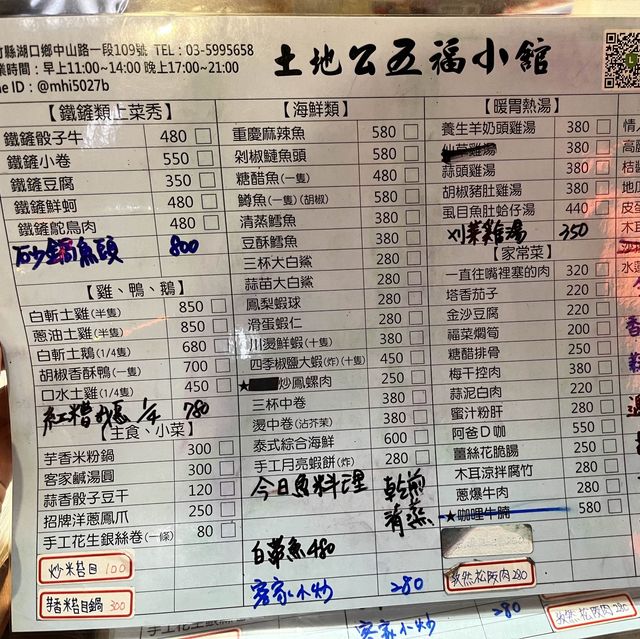 竹縣湖口鄉中山路一段109號 TEL：03-5995658
業時間：早上11:00~14:00 晚上17:00~21:00
ne ID：@mhi5027b
土地公五福小館
【鐵鏟類上菜秀】
鐵鏟骰子牛 480
鐵鏟小卷 550
鐵鏟豆腐 350
鐵鏟鮮蚵 480
鐵鏟鴕鳥肉 480
砂鍋魚頭 800
【雞、鴨、鵝】
白斬土雞(半隻) 850
蔥油土雞(半隻) 850
白斬土鵝(1/4隻) 680
胡椒香酥鴨(一隻) 700
口水土雞(1/4隻) 450
紅糟 1/4 780
【主食、小菜】
芋香米粉鍋 300
客家鹹湯圓 300
蒜香骰子豆干 120
招牌洋蔥鳳爪 250
手工花生銀絲卷(一條) 80
炒米苔目 100
芋香米苔目鍋 300
【海鮮類】
重慶麻辣魚 580
剁椒鰱魚頭 580
糖醋魚(一隻) 480
鱒魚(一隻)(胡椒) 580
清蒸鱈魚 380
豆酥鱈魚 380
三杯大白鯊 280
蒜苗大白鯊 280
鳳梨蝦球 280
滑蛋蝦仁 280
川燙鮮蝦(十隻) 380
四季椒鹽大蝦(炸)(十隻) 450
★炒鳳螺肉 250
三杯中卷 380
燙中卷(沾芥茉) 380
泰式綜合海鮮 600
手工月亮蝦餅(炸) 280
今日魚料理 乾煎
清蒸
白草魚 480
客家小炒 280
【暖胃熱湯】
養生羊奶頭雞湯 380
仙草雞湯 380
蒜頭雞湯 380
胡椒豬肚雞湯 380
虱目魚肚蛤仔湯 440
刈菜雞湯 350
【家常菜】
一直往嘴裡塞的肉 320
塔香茄子 220
金沙豆腐 220
福菜燜筍 200
糖醋排骨 250
梅干控肉 380
蒜泥白肉 220
蜜汁粉肝 280
阿爸D咖 550
薑絲花脆腸 250
木耳涼拌腐竹 280
蔥爆牛肉 280
★咖哩牛腩 580
孜然松阪肉 280
客家小炒 280
孜然松阪肉 280